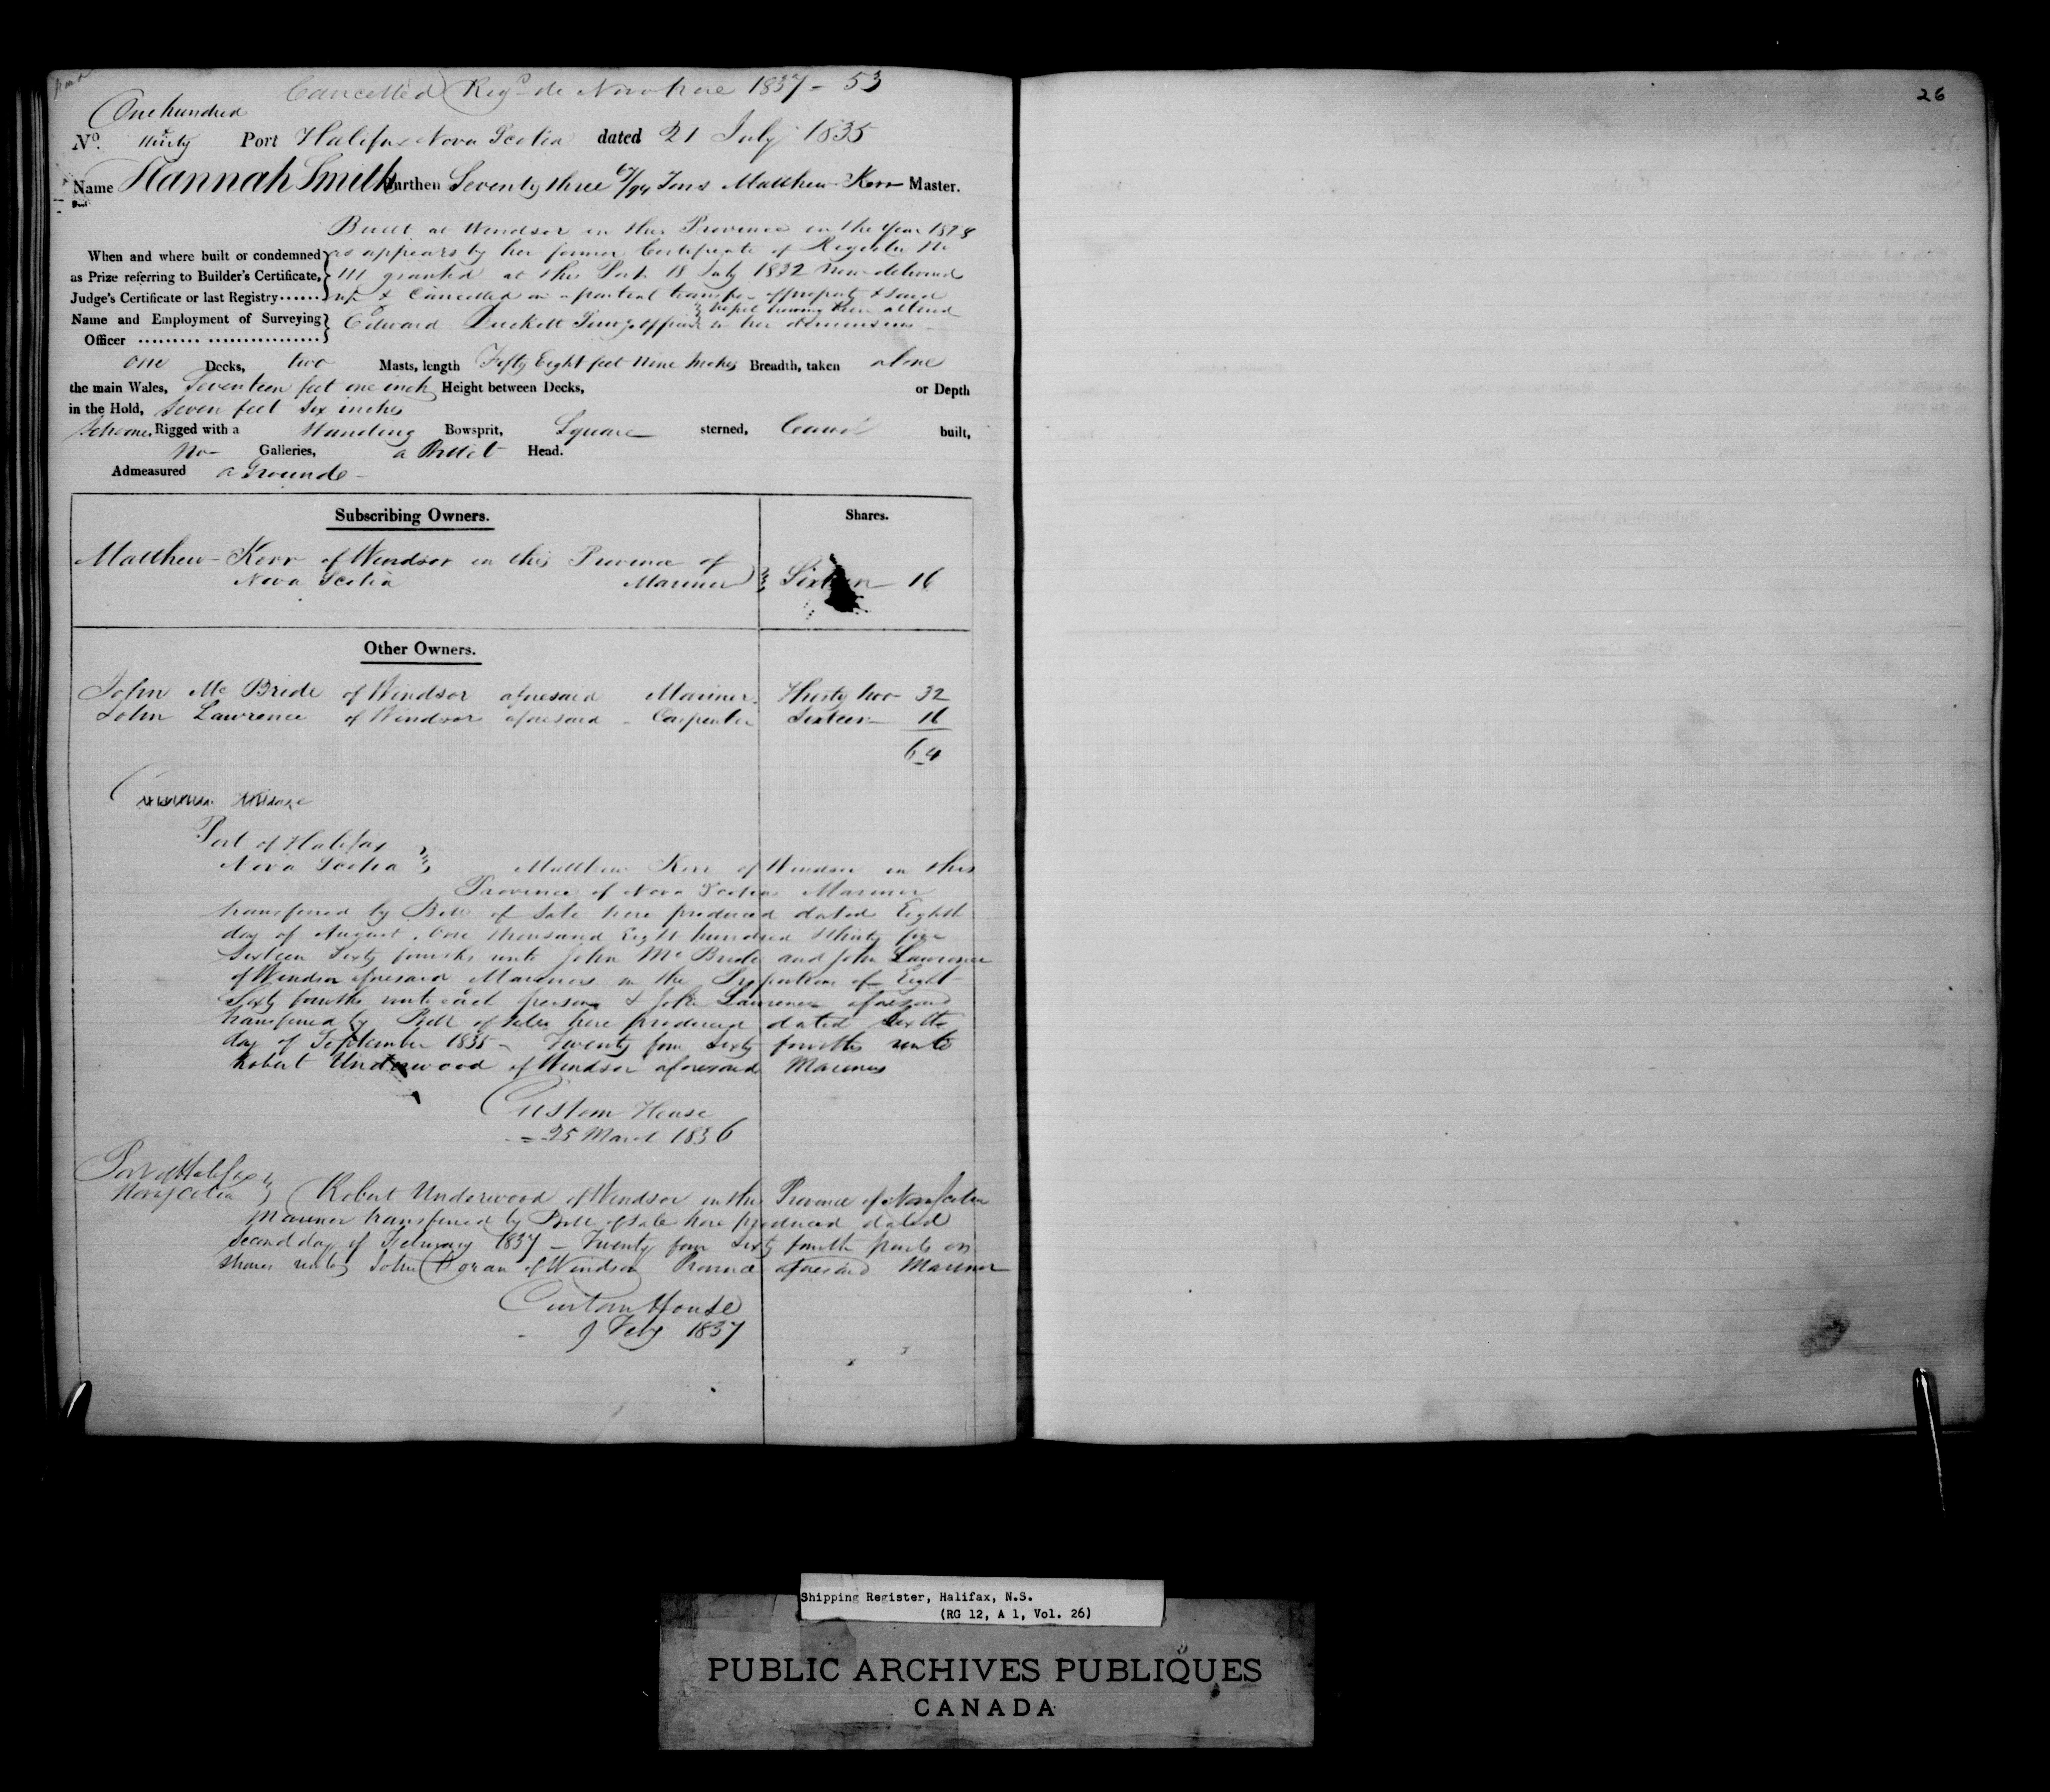 Cancelled Regd de Novo here 1837 - 53
One hundred
No. thirty Port Halifax Nova Scotia dated 21 July 1835
Name Hannah Smith Burthen Seventy three /94 Tons Matthew Kerr Master.
Built at Windsor in this Province in the Year 1828
When and where built or condemned as appears by her former Certificate of Register No
as Prize referring to Builder's Certificate, 111 granted at this Port 18 July 1832 now delivered
Judge's Certificate or last Registry...... up & Cancelled on a partial transfer of property & said
Vessel having been altered
Name and Employment of Surveying Edward Duckett in her dimensions
Officer
one Decks, two Masts, length Fifty Eight feet Nine Inches Breadth, taken above
the main Wales, Seventeen feet one inch Height between Decks, or Depth
in the Hold, Seven feet Six inches
Schooner Rigged with a Standing Bowsprit, Square sterned, Carvel built,
No Galleries, a Billet Head.
Admeasured a Ground
Subscribing Owners. Shares.
Matthew Kerr of Windsor in this Province of
Nova Scotia Mariner Sixteen 16
Other Owners.
John Mc Bride of Windsor aforesaid Mariner Thirty two 32
John Lawrence of Windsor aforesaid - Carpenter Sixteen 16
64
Port of Halifax
Nova Scotia Matthew Kerr of Windsor in this
Province of Nova Scotia Mariner
transferred by Bill of Sale here produced dated Eighth
day of August One thousand Eight hundred thirty five
Sixteen Sixty fourths unto John Mc Bride and John Lawrence
of Windsor aforesaid Mariners in the Proportion of Eight
Sixty fourths unto each person & John Lawrence aforesaid
transferred by Bill of Sale here produced dated Sixth
day of September 1835 - Twenty four Sixty fourths unto
Robert Underwood of Windsor aforesaid Mariner
Custom House
25 March 1836
Port of Halifax
Nova Scotia Robert Underwood of Windsor in this Province of Nova Scotia
Mariner transferred by Bill of Sale here produced dated
Second day of February 1837 - Twenty four Sixty fourth parts or
shares unto John Doran of Windsor Province aforesaid Mariner
Custom House
9 Feby 1837
26
Shipping Register, Halifax, N.S.
(RG 12, A 1, Vol. 26)
PUBLIC ARCHIVES PUBLIQUES
CANADA